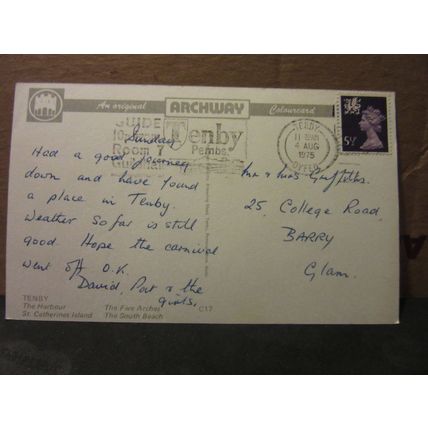 An original ARCHWAY Colourcard
GUIDE
Room 7
Tenby
Pembs.
TENBY
11-30AM
4 AUG
1975
DYFED
5½
Sunday
Had a good journey
down and have found
a place in Tenby.
Weather so far is still
good. Hope the carnival
went off O.K.
David, Pat & the
girls.
Mr & Mrs Griffiths.
25, College Road,
BARRY
Glam.
TENBY
The Harbour The Five Arches
St. Catherines Island The South Beach
C17